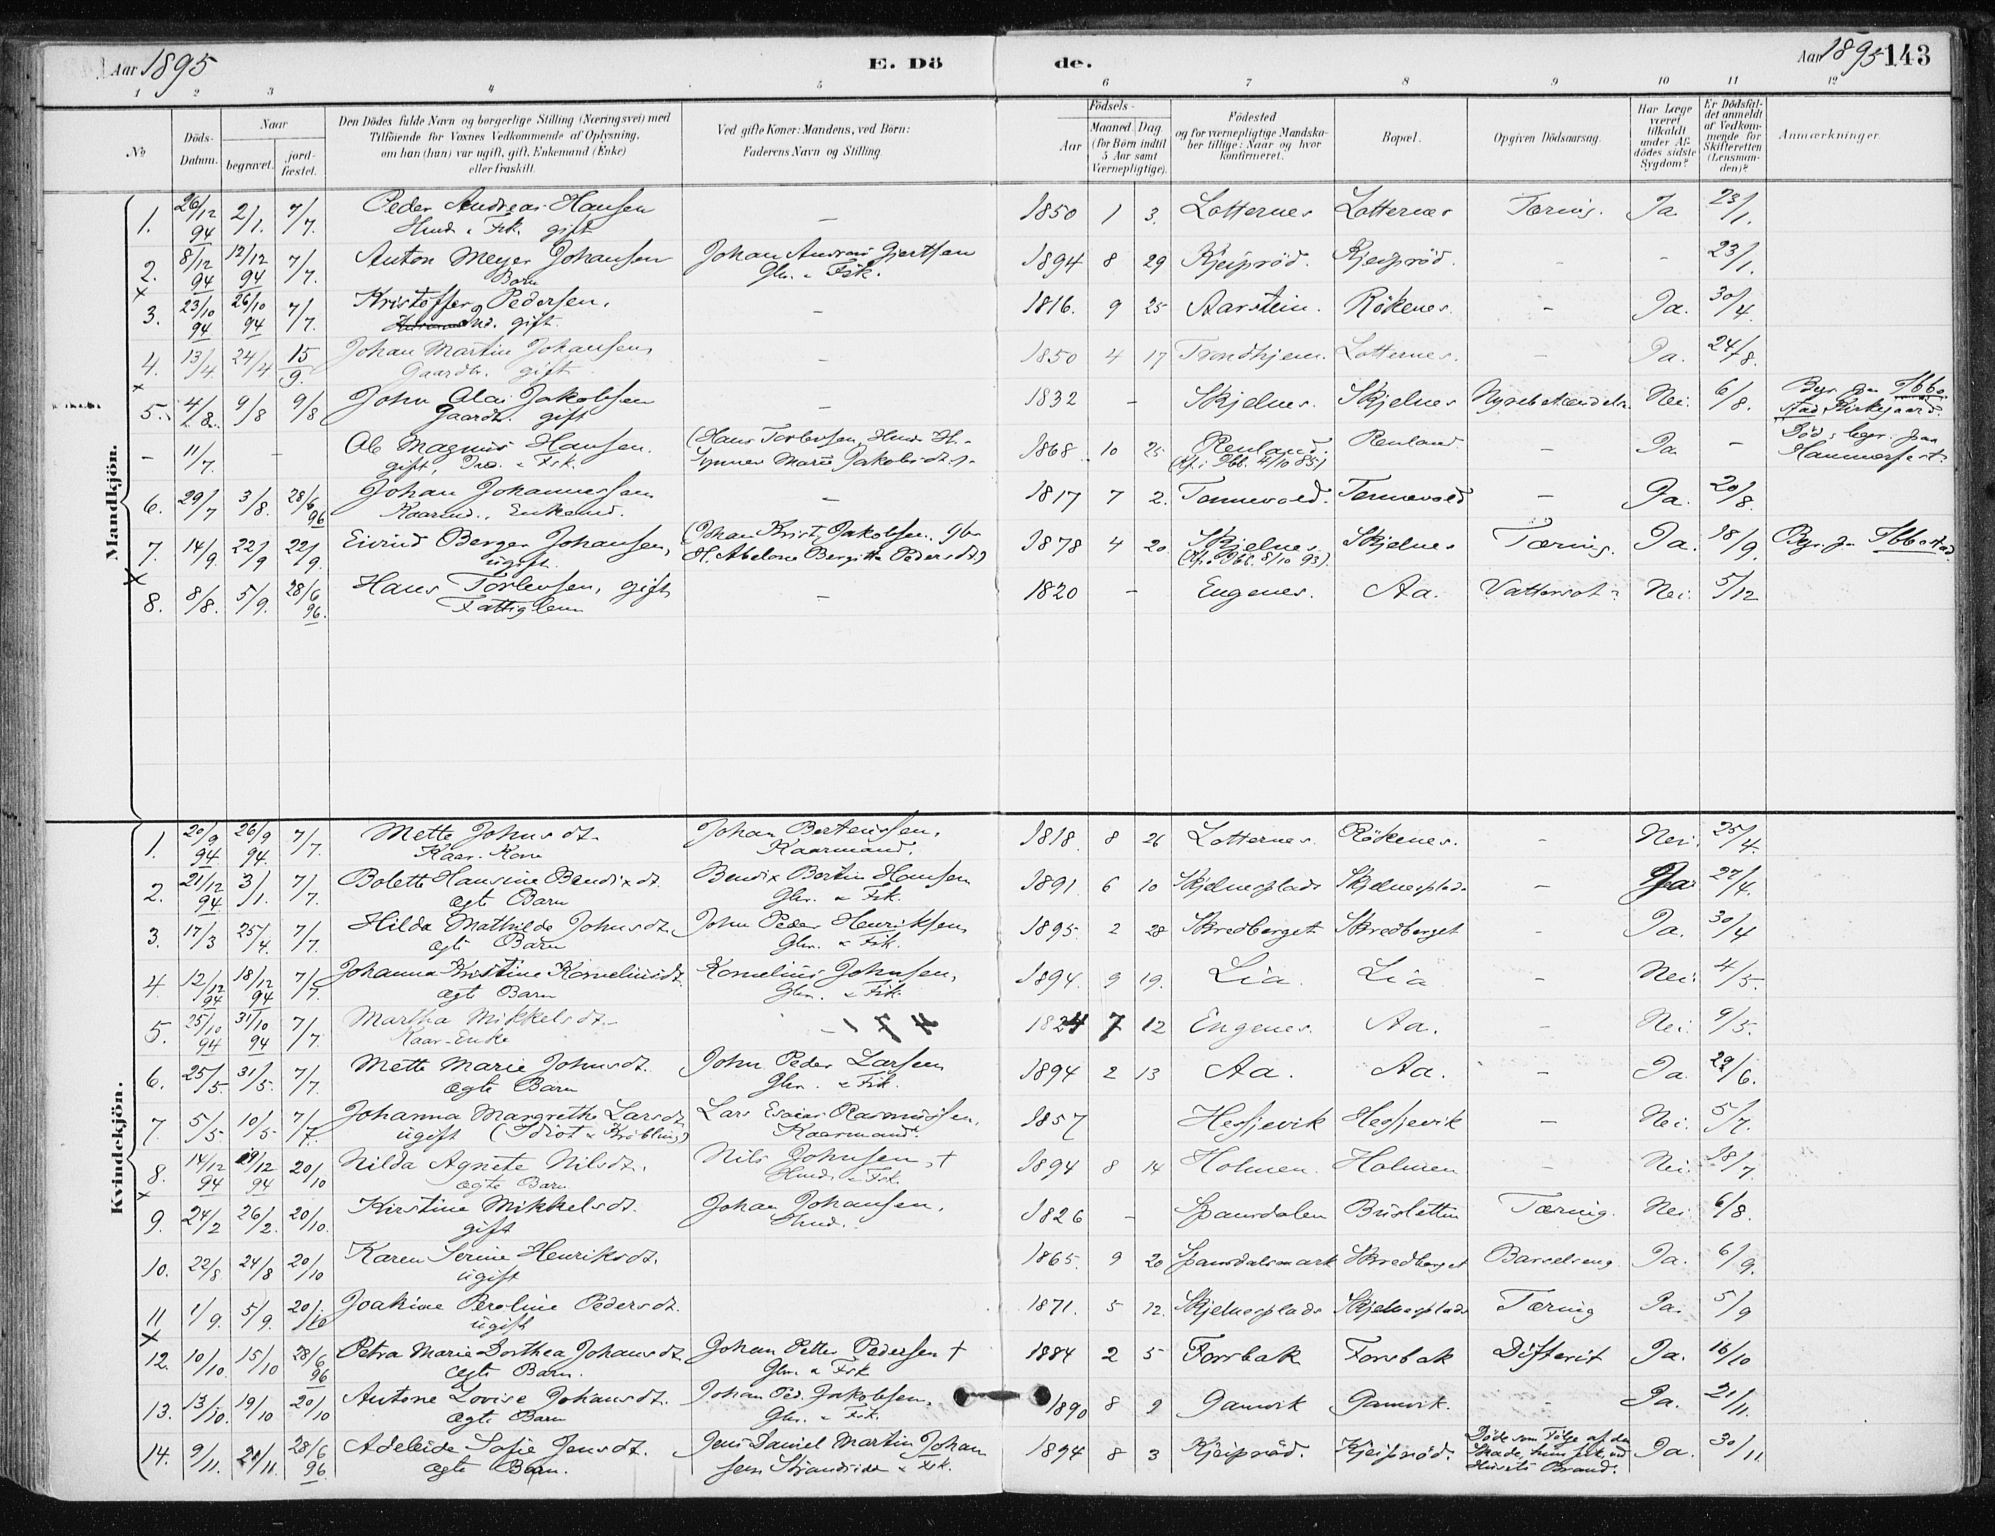 Aar 1895 E. Dö de. Aar 1895 143
1 2 3 4 5 6 7 8 9 10 11 12
No
Döds-Datum.
Naar
begravet.
jord-fæstet.
Den Dödes fulde Navn og borgerlige Stilling (Næringsvei) med
Tilföiende for Voxnes Vedkommende af Oplysning,
om han (hun) var ugift, gift, Enkemand (Enke)
eller fraskilt.
Ved gifte Koner: Mandens, ved Börn:
Faderens Navn og Stilling.
Födsels-
Aar
Maaned Dag
(for Börn indtil
5 Aar samt
Værnepligtige).
Födested
og for værnepligtige Mandska-
ber tillige: Naar og hvor
konfirmeret.
Bopæl.
Opgiven Dödsaarsag.
Har Læge
været
tilkaldt
under Af-
dödes sidste
Sygdom?
Er Dödsfal-
det anmeldt
af Vedkom-
mende for
Skifteretten
(Lensman-
den)?
Anmærkninger.
Mandkjön.
1. 26/12 94 2/1. 7/7. Peder Andreas Hansen — 1850 1 3. Lotternes Lotternes Tæring. Ja 23/1.
Hmd. & Fsk. gift
2. 8/12 94 12/12 94 7/7. Anton Meyer Johansen Johan Andreas Gjertsen 1894 8 29 Kjeiprød. Kjeiprød. - - 23/1.
Barn Gbr. & Fsk.
x
3. 23/10 94 26/10 94 7/7. Kristoffer Pedersen. — 1816. 9 25 Aarstein. Rökenes. - Ja. 30/4.
gift.
4. 13/4. 24/4 15/9. Johan Martin Johansen — 1850 4 17 Trondhjem. Lotternes. - Ja. 24/8.
Gaardbr. gift
x
5. 4/8. 9/8 9/8 John Olai Jakobsen — 1832 - Skjelnes. Skjelnes Nei. 6/8. Begr. paa Ibbe-
Gaardb. gift stad Kirkegaard.
- 11/7. - Ole Magnus Hansen. (Hans Torleifsen, 1868 10 25 Renland. Renland - Ja - Död & begr. paa
gift, Ind. & Fsk. Marie Jakobsdt.) (Kf. i Ibb. 4/10 85) Hammerfest.
6. 29/7 3/8. 28/6 96 Johan Johannessen — 1817 7 2. Tennevold. Tennevold — Ja. 20/8.
Kaarmd., Enkemd.
7. 14/9. 22/9 22/9. Eivind Berger Johansen, (Johan Krist. Jakobsen. Gbr 1878 4 20 Skjelnes Skjelnes Tæring. Ja. 18/9. Begr. paa Ibbestad
ugift. H. Abelone Bergitte Pedersdt.) (Kf. i Ibb. 8/10 93).
x
8. 8/8. 5/9. 28/6 96. Hans Torleifsen, gift — 1820 - Engenes. Aa. Vattersot Nei. 5/12
Fattiglem
Kvindekjön.
1. 20/9 94 26/9 94. 7/7. Mette Johnsdt. Johan Bertensen. 1818. 8 26 Lotternes. Rökenes. - Nei. 25/4.
Kaar. Kone Kaarmand.
2. 21/12 94 3/1. 7/7. Bolette Hansine Bendixdt. Bendix Bertin Hansen 1891. 6 10 Skjelnesplads Skjelnesplads - Ja 27/4.
ægte Barn Gbr. & Fsk.
3. 17/3 25/4. 7/7. Hilda Mathilde Johnsdt. John Peder Henriksen 1895. 2 28 Skredberget Skredberget - Ja. 30/4
ægte Barn Gbr. & Fsk.
4. 12/12 94 18/12 94 7/7. Johanna Kristine Korneliusdt. Kornelius Johnsen. 1894. 9 19. Lia. Lia - Nei. 4/5.
ægte Barn Gbr. & Fsk.
5. 25/10 94 31/10 94 7/7. Martha Mikkelsdt. — 1824 7 12 Engenes. Aa. - Nei. 9/5.
Kaar-Enke
6. 25/5. 31/5. 7/7. Mette Marie Johnsdt. John Peder Larsen 1894 2 13 Aa. Aa. — Ja 29/6.
ægte Barn Gbr. & Fsk.
7. 5/5 10/5. 7/7. Johanna Margrethe Larsdt. Lars Esaias Rasmussen. 1857 Hesjevik Hesjevik — Nei. 5/7.
ugift (Idiot & Kröbling) Kaarmand.
8. 14/12 94 29/12 94 20/10 Nilda Agnete Nilsdt. Nils Johnsen, † 1894 8 14 Holmen. Holmen - Nei. 18/7.
ægte Barn Hmd. & Fsk.
x
9. 24/2 26/2. 20/10. Kirstine Mikkelsdt. Johan Johansen. 1826 - Spansdalen Brisletten Tæring. Nei. 6/8.
gift Hmd.
10. 22/8 24/8 20/10 Karen Serine Henriksdt. 1865. 9 20 Spansdalsmark Skredberget Barselseng Ja. 6/9.
ugift
11 1/9. 5/9. 20/10 Joakine Peroline Pedersdt. 1871. 5 12. Skjelnesplads Skjelnesplads Tæring Ja. 5/9
ugift
x
12. 10/10. 15/10 28/6 96 Petra Marie Dorthea Johansdt. Johan Petter Pedersen † 1884 2 5 Forsbak Forsbak Difterit Ja. 16/10
ægte Barn. Gbr. & Fsk
13. 13/10. 19/10 20/10 Antone Lovise Johansdt. Johan Ped. Jakobsen, 1890 8 9 Gamvik Gamvik. - Ja. 21/11.
ægte Barn Gbr. & Fsk.
14. 9/11. 20/11. 28/6 96 Adeleide Sofie Jensdt. Jens Daniel Martin Johan 1894 8 3 Kjeiprød. Kjeiprød. Döde som Fölge af den Ja. 30/11.
ægte Barn. sen Strandsider & Fsk. Skade, hun fik ved
Husets Brand.